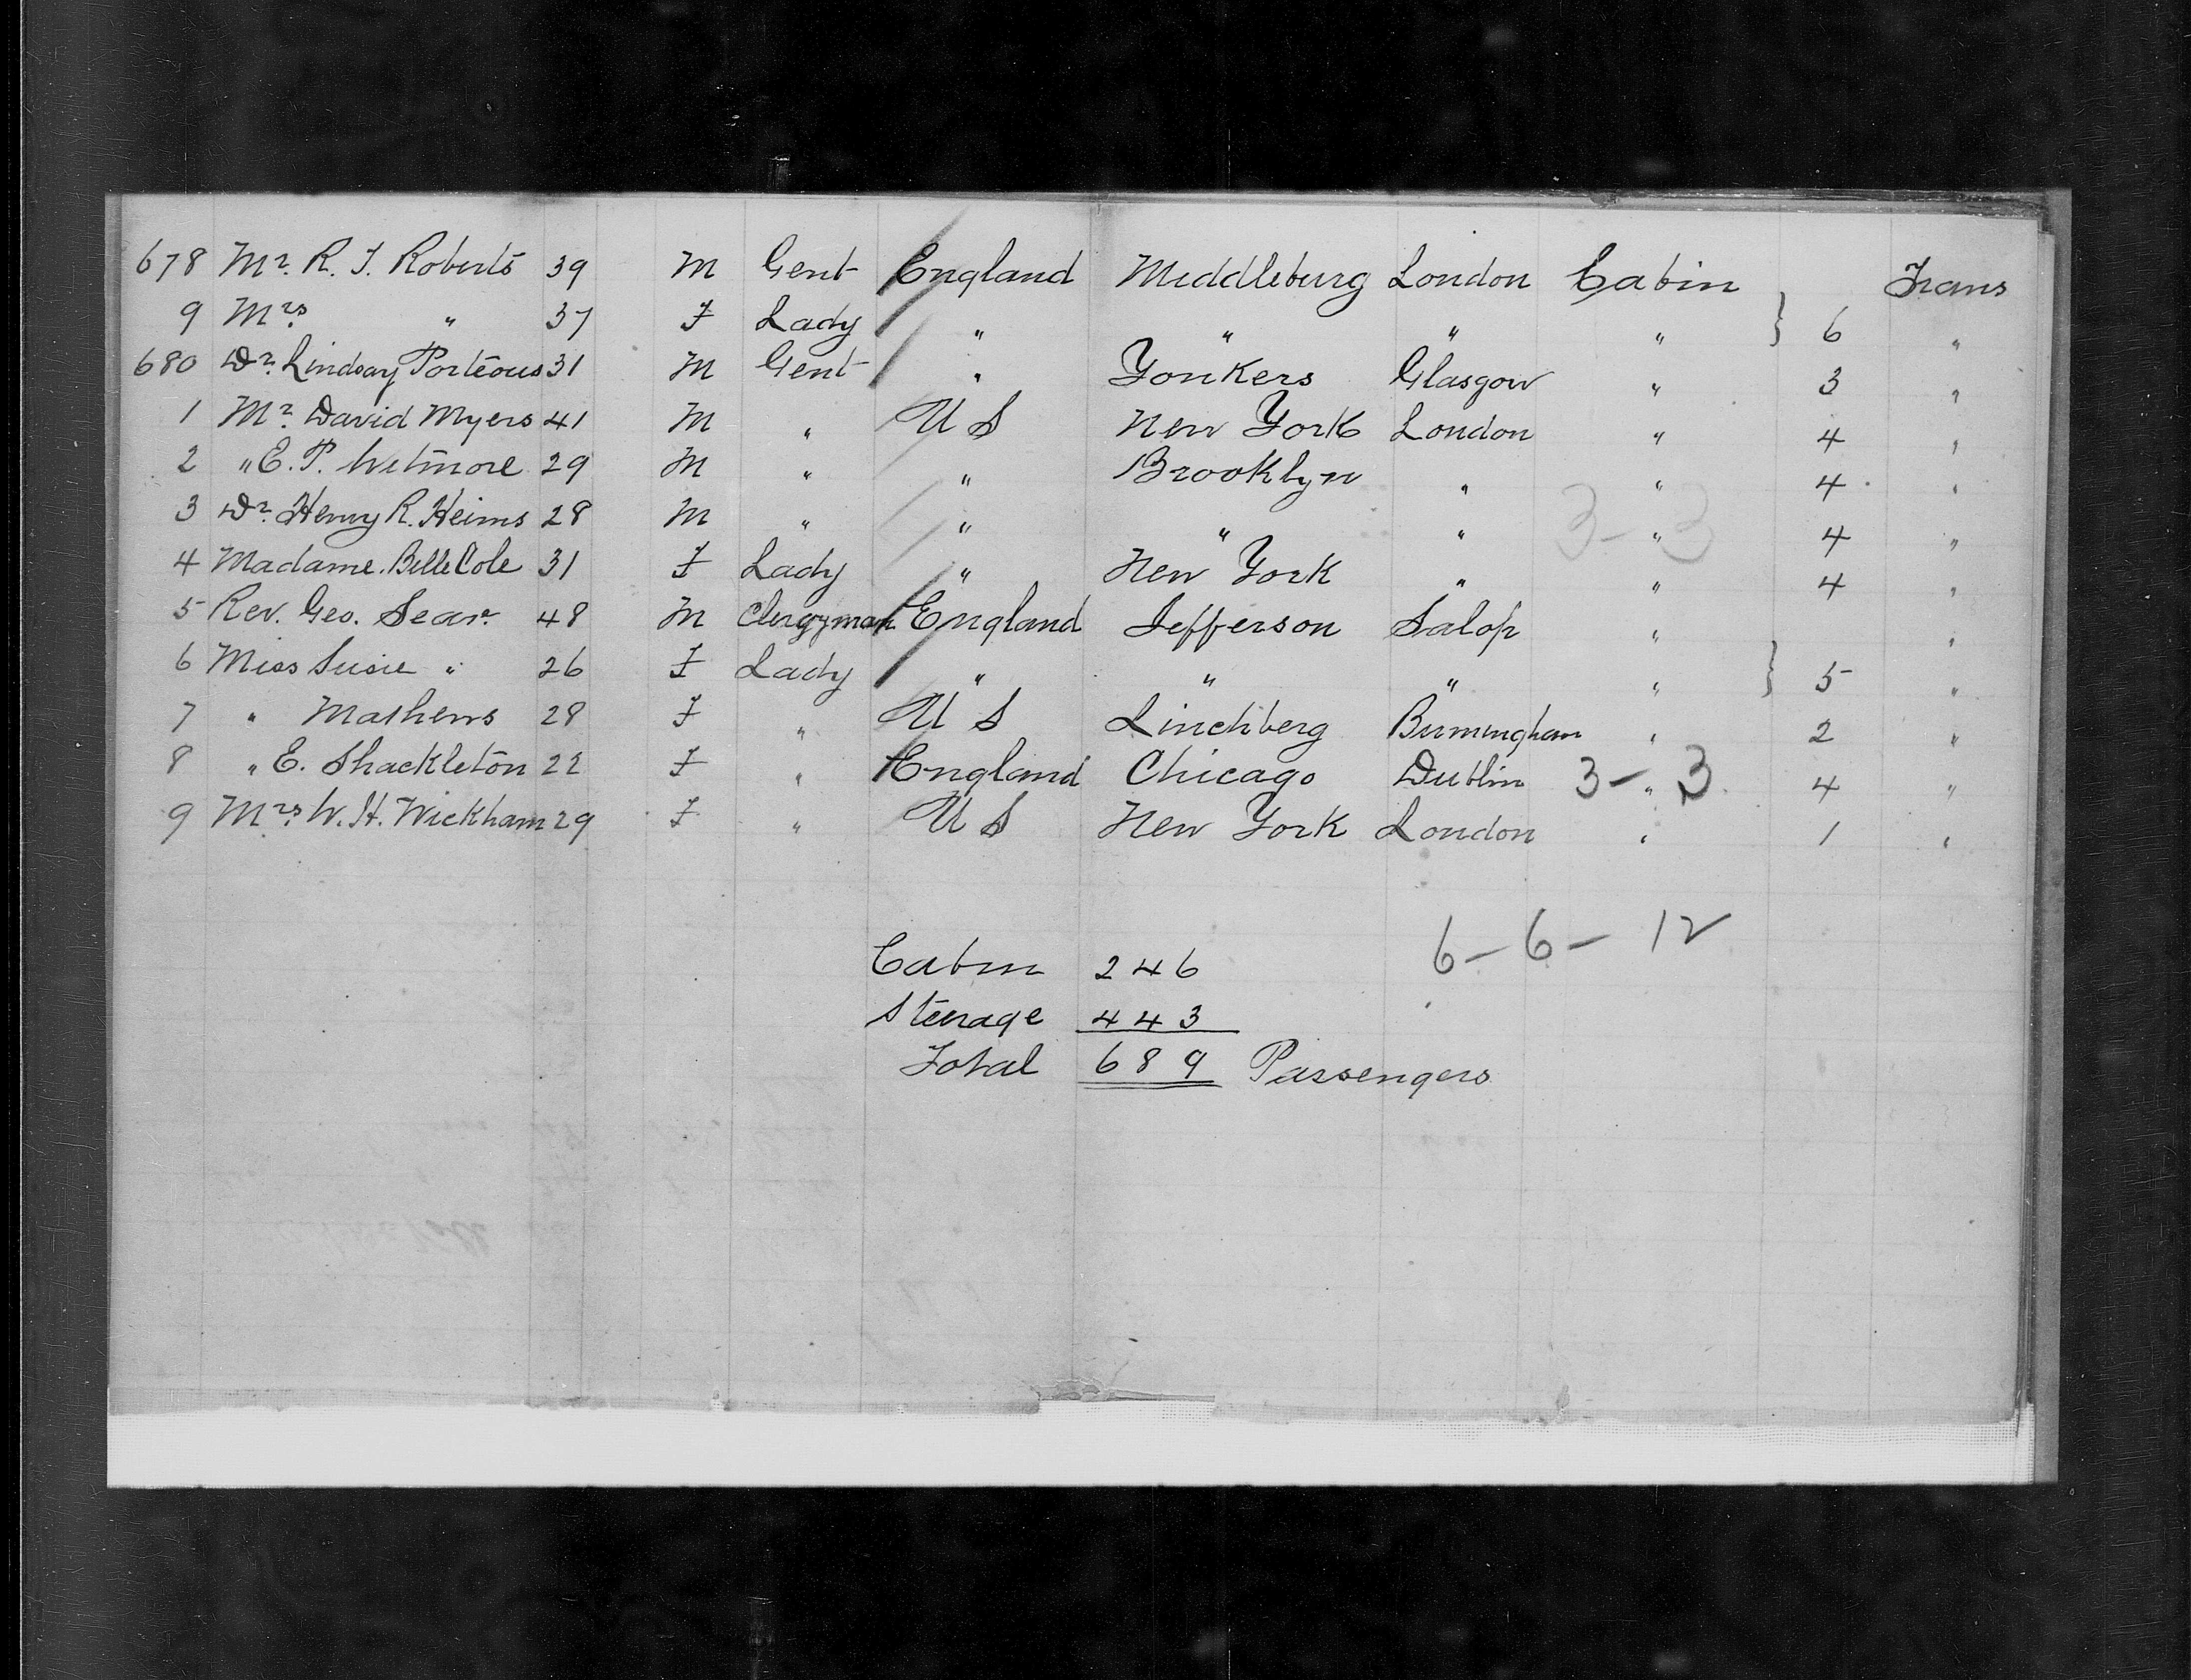 678 Mr. R. J. Roberts 39 M Gent England Middleburg London Cabin Trans
9 Mrs. " 37 F Lady " " " " } 6 "
680 Dr. Lindsay Porteous 31 M Gent " Yonkers Glasgow " 3 "
1 Mr. David Myers 41 M " U S New York London " 4 "
2 " E. P. Wetmore 29 M " " Brooklyn " " 4 "
3 Dr. Henry R. Heims 28 M " " " " 3 - " 3 4 "
4 Madame. Belle Cole 31 F Lady " New York " " 4 "
5 Rev. Geo. Sear. 48 M Clergyman England Jefferson Salop " "
6 Miss Susie " 26 F Lady " " " " } 5 "
7 " Mathews 28 F " U S Linchberg Birmingham " 2 "
8 " E. Shackleton 22 F " England Chicago Dublin 3 - " 3 4 "
9 Mrs. W. H. Wickham 29 F " U S New York London " 1 "
6 - 6 - 12
Cabin 246
Steerage 443
Total 689 Passengers